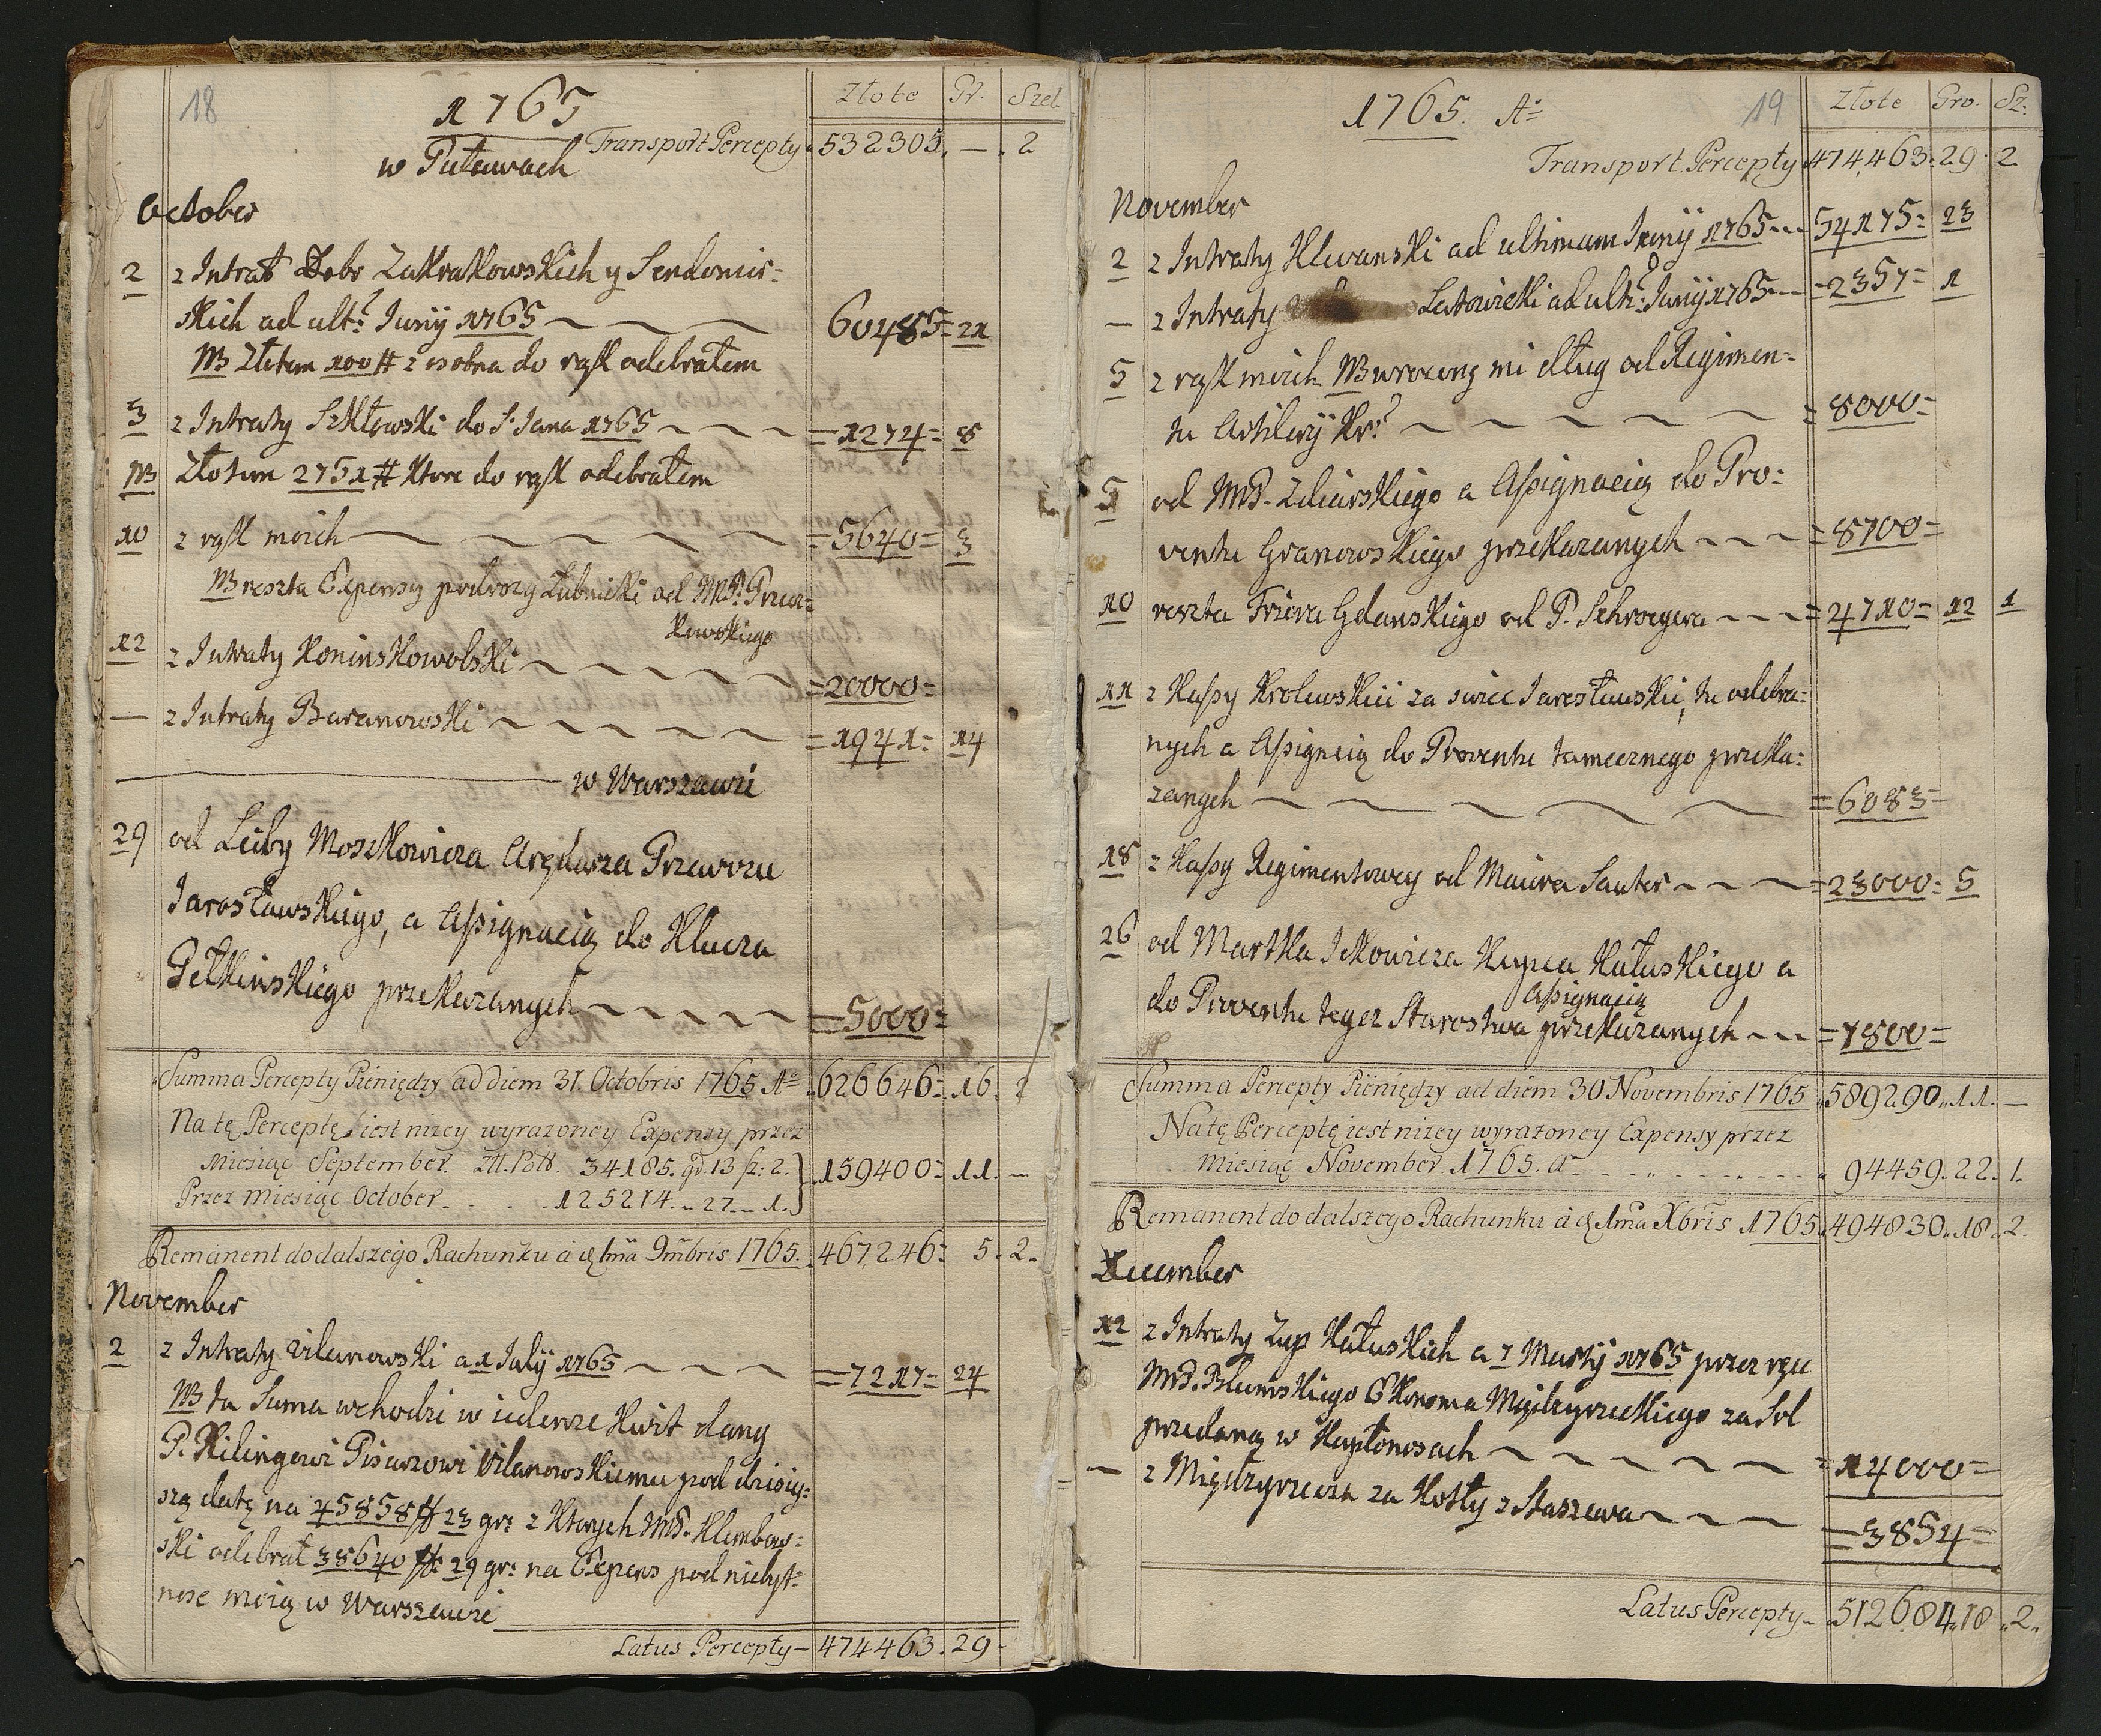 18
1765
Złote Gr. Szel
Transport Percepty 532305. — . 2
w Puławach
October
2 z Intrat Dobr Zakrakowskich y Sendomir=
skich ad ult: Iunÿ 1765 60485= 21
NB Złotem 100 # z osobna do rąk odebrałem
3 z Intraty Szkłowski do S. Jana 1765 =1274= 8
NB Złotem 2751 # ktore do rąk odebrałem
10 z rąk moich =5640= 3
NB reszta Expensy podrozy Lubnicki od MP.
kowskiego
12 z Intraty Koninskowolski =20000=
— z Intraty Baranowski =1941= 14
w Warszawie
29 od Leiby Moszkowicza Arędarza Przewozu
Jarosławskiego, a Aßignacią do Klucza
Pełkinskiego przekazanych =5000=
Summa Percepty Pieniędzy ad diem 31. Octobris 1765 Aº 626646= 16. 2
Na tę Perceptę iest nizey wyrazoney Expensy przez
Miesiąc September. Zll. Poll. 34185. gr. 13 sz: 2. 159400= 11. —
Przez Miesiąc October 125214. „ 27. „ 1.
Remanent do dalszego Rachunku à d. 1ma 9mbris 1765. 467246= 5. 2.
November
2 z Intraty Vilanowski a 1 Iulÿ 1765 =7217= 24
NB ta Suma wchodzi w iedenze Kwit dany
P. Kilingowi Pisarzowi Vilanowskiemu pod dzisiey=
szą datą na 45858 # 23 gr: z ktorych MP. Klembow=
ski odebrał 38640 # 29 gr: na Expens pod niebyt=
nosc moią w Warszawie
Latus Percepty — 474463. 29 —
1765. Aº 19
Złote Gro. Sz.
Transport Percepty 474,463. 29. 2
November
2 z Intraty Klewanski ad ultimam Iunÿ 1765 54175= 23
— z Intraty Latowicki ad ult: Iunÿ 1765 =2357= 1
5 z rąk moich NB wrocony mi dług od Regimen=
tu Artilerÿ Kr: =8000=
5 od MP. Zdziarskiego a Aßignacią do Pro=
ventu Granowskiego przekazanych =8700=
10 reszta Friora Gdanskiego od P. Schroegera =4710= 12 1
11 z Kaßy Krolewskii za swiec Iarosławski, tu odebra=
nych a Aßignacią do Proventu tamecznego przeka=
zanych =6083=
18 z Kaßy Regimentowey od Maiora Sauter =23000= 5
26 od Martka Ickowicza Kupca Kałuskiego a
Aßignacią
do Proventu tegoz Starostwa przekazanych =7800=
Summa Percepty Pieniędzy ad diem 30 Novembris 1765 589290„ 11. —
Na tę Perceptę iest nizey wyrazoney Expensy przez
Miesiąc November. 1765. Aº 94459. 22. 1.
Remanent do dalszego Rachunku à d. 1ma Xbris 1765. 494830„ 18„ 2.
December
12 z Intraty Zup Kałuskich a 7 Martÿ 1765 przez ręce
MP. Blumskiego Ekonoma Międzyrzeckiego za Sol
przedaną w Kapłonosach =14000=
— z Międzyrzecza za Kotły z Staszewa =3854=
Latus Percepty — 512684„ 18 „2„